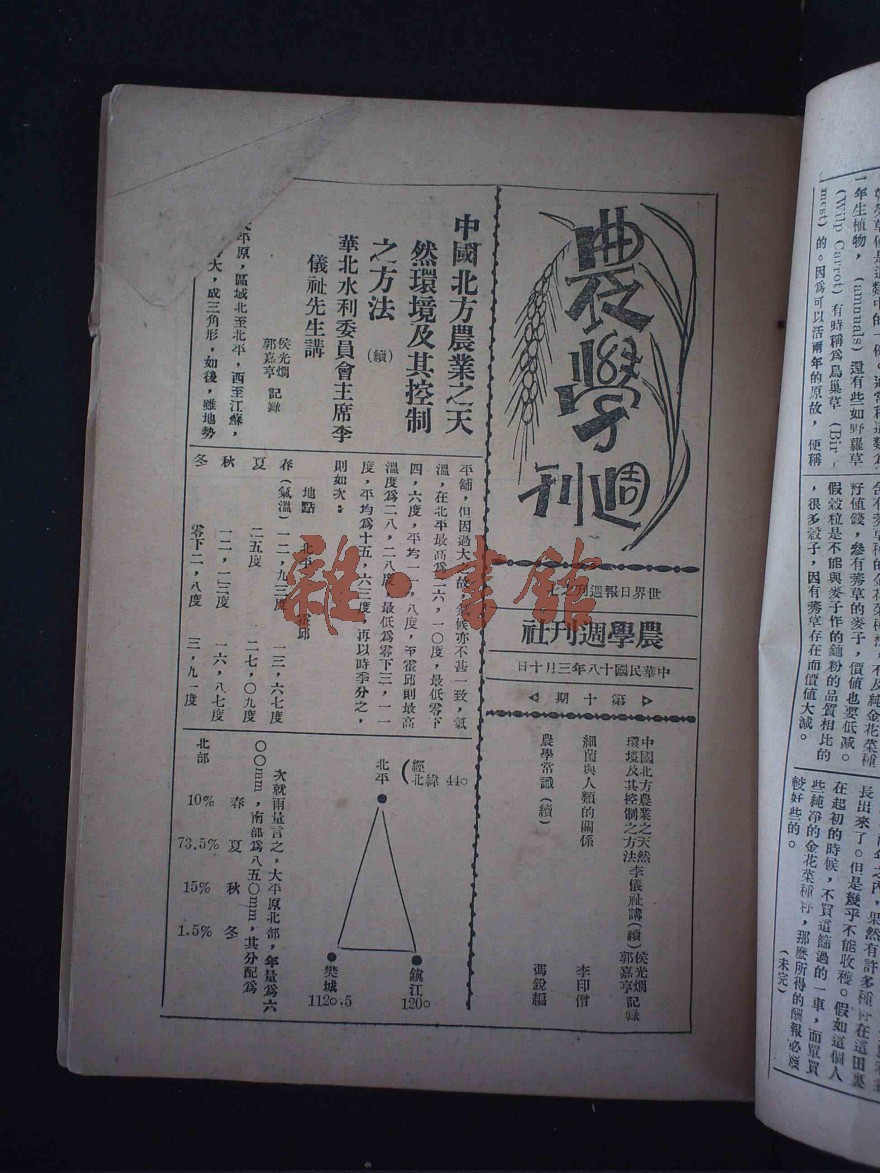 農學週刊
世界日報週刊之七
農學週刊社
中華民國十八年三月十日
第十期
中國北方農業之天然
環境及其控制之方法 李儀祉講(續) 侯光烱 郭嘉亨 記錄
細菌與人類的關係 李印僧
農學常識(續) 馮銳編
中國北方農業之天
然環境及其控制
之方法 (續)
華北水利委員會主席李
儀祉先生講
侯光烱
郭嘉亨 記錄
平原,區域北至北平,西至江蘇,
大,成三角形,如後,雖地勢
平舖,但因過大之故,氣候亦不甚一致,氣
溫,在北平最高為二六,一〇度,最低零下
四,六度,平均一一,八度,至霍邱則最高
溫度為二八,二八度,最低為零下三,一一
度,平均為十五,六三度,再以時季分之,
則如次:
地點 北平 霍邱
春(氣溫) 一二,九三度 一三,六七度
夏 二五度 二七,〇九度
秋 一二,一三度 一六,八七度
冬 零下二,八度 三,九一度
經北緯 440
北平
鎮江
1200
樊城
1120.5
次就雨量言之,大平原北部,年量為六
〇〇mm,南部為八五〇mm,其分配為
春 夏 秋 冬
北部 10% 73.5% 15% 1.5%
彰榮草種是這類中的一例。通常稱這類為
一年生植物, (annuals) 還有些如野羅草
(Wild Carrot) 有時稱為鳥巢草 (Bir
nest) 的。因為可以活兩年的原故,便稱
含有莠草種的金花菜種籽,不及純金花菜種
籽值錢,參有莠草的麥子,價值也要低減。
假穀粒是不能與麥子作的麵粉的品質相比的
,很多穀子,因有莠草存在而價值大減。
長出來了。但是幾乎不能收穫。假如這個人
在起初的時候,不買這篩過的一車,而單買
些純淨的金花菜種籽,那麼所得的酬報必須
較好些的。
(未完)
雜·書館